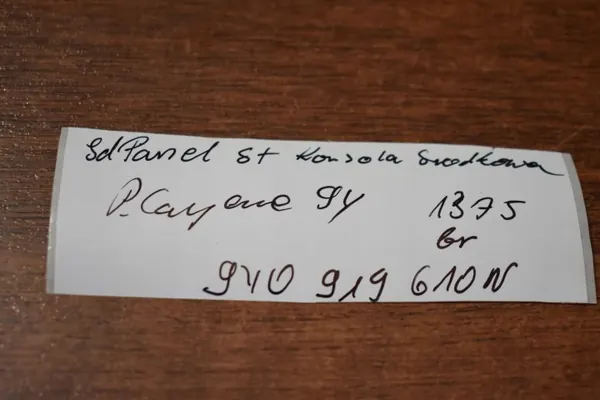 SdPanel St Konsola Środkowa
P. Cayene 9Y 1375
br
9Y0 919 610N